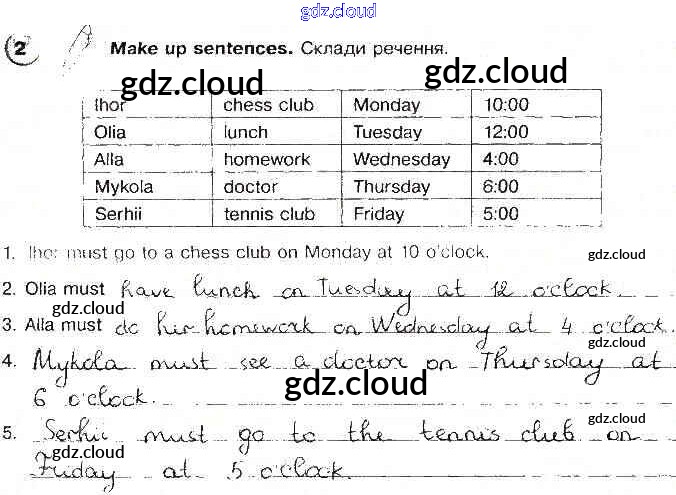 gdz.cloud
2 Make up sentences. Склади речення.
gdz.cloud gdz.cloud
Ihor chess club Monday 10:00
Olia lunch Tuesday 12:00
Alla homework Wednesday 4:00
Mykola doctor Thursday 6:00
Serhii tennis club Friday 5:00
1. Ihor must go to a chess club on Monday at 10 o'clock. gdz.cloud
2. Olia must have lunch on Tuesday at 12 o'clock.
gdz.cloud
3. Alla must do her homework on Wednesday at 4 o'clock.
gdz.cloud
4. Mykola must see a doctor on Thursday at
6 o'clock. gdz.cloud
gdz.cloud
5. Serhii must go to the tennis club on
gdz.cloud
Friday at 5 o'clock.